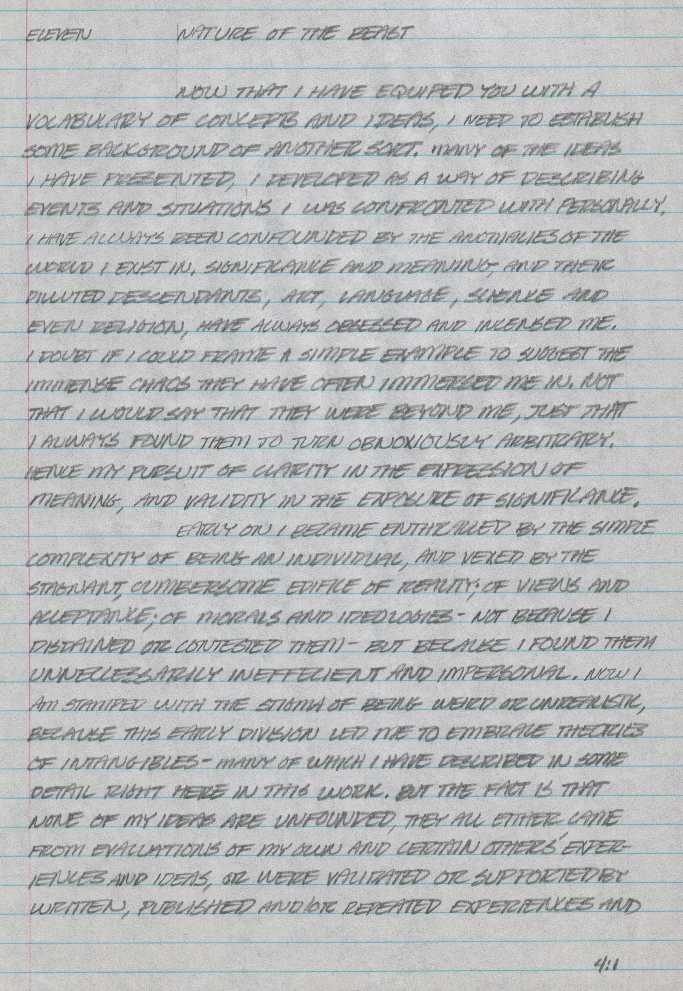 ELEVEN NATURE OF THE BEAST
NOW THAT I HAVE EQUIPED YOU WITH A
VOCABULARY OF CONCEPTS AND IDEAS, I NEED TO ESTABLISH
SOME BACKGROUND OF ANOTHER SORT. MANY OF THE IDEAS
I HAVE PRESENTED, I DEVELOPED AS A WAY OF DESCRIBING
EVENTS AND SITUATIONS I WAS CONFRONTED WITH PERSONALLY.
I HAVE ALLWAYS BEEN CONFOUNDED BY THE ANOMALIES OF THE
WORLD I EXIST IN. SIGNIFICANCE AND MEANING, AND THEIR
DILLUTED DESCENDANTS, ART, LANGUAGE, SCIENCE AND
EVEN RELIGION, HAVE ALWAYS OBSESSED AND INCENSED ME.
I DOUBT IF I COULD FRAME A SIMPLE EXAMPLE TO SUGGEST THE
IMMENSE CHAOS THEY HAVE OFTEN IMMERSED ME IN. NOT
THAT I WOULD SAY THAT THEY WERE BEYOND ME, JUST THAT
I ALWAYS FOUND THEM TO TURN OBNOXIOUSLY ARBITRARY.
HENCE MY PURSUIT OF CLARITY IN THE EXPRESSION OF
MEANING, AND VALIDITY IN THE EXPOSURE OF SIGNIFICANCE.
EARLY ON I BECAME ENTHRALLED BY THE SIMPLE
COMPLEXITY OF BEING AN INDIVIDUAL, AND VEXED BY THE
STAGNANT, CUMBERSOME EDIFICE OF REALITY; OF VIEWS AND
ACCEPTANCE; OF MORALS AND IDEOLOGIES - NOT BECAUSE I
DISTAINED OR CONTESTED THEM - BUT BECAUSE I FOUND THEM
UNNECESSARILY INEFFICIENT AND IMPERSONAL. NOW I
AM STAMPED WITH THE STIGMA OF BEING WEIRD OR UNREALISTIC,
BECAUSE THIS EARLY DIVISION LED ME TO EMBRACE THEORIES
OF INTANGIBLES - MANY OF WHICH I HAVE DESCRIBED IN SOME
DETAIL RIGHT HERE IN THIS WORK. BUT THE FACT IS THAT
NONE OF MY IDEAS ARE UNFOUNDED, THEY ALL EITHER CAME
FROM EVALUATIONS OF MY OWN AND CERTAIN OTHERS' EXPER-
IENCES AND IDEAS, OR WERE VALIDATED OR SUPPORTED BY
WRITTEN, PUBLISHED AND/OR REPEATED EXPERIENCES AND
4:1